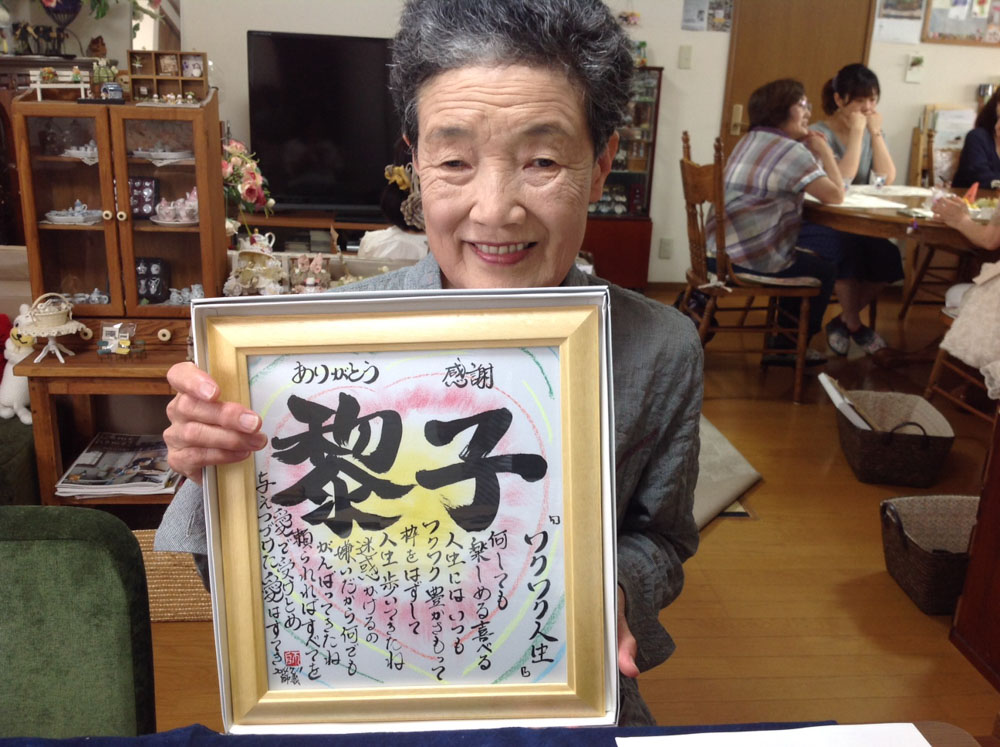 ありがとう 感謝
黎子
『ワクワク人生』
何しても
楽しめる喜べる
人生にはいつも
ワクワク豊かさもって
枠をはずして
人生歩いてきたね
迷惑かけるの
嫌いだから何でも
がんばってきたね
頼られればすべてを
愛で受けとめ
与えつづけた愛はずっと